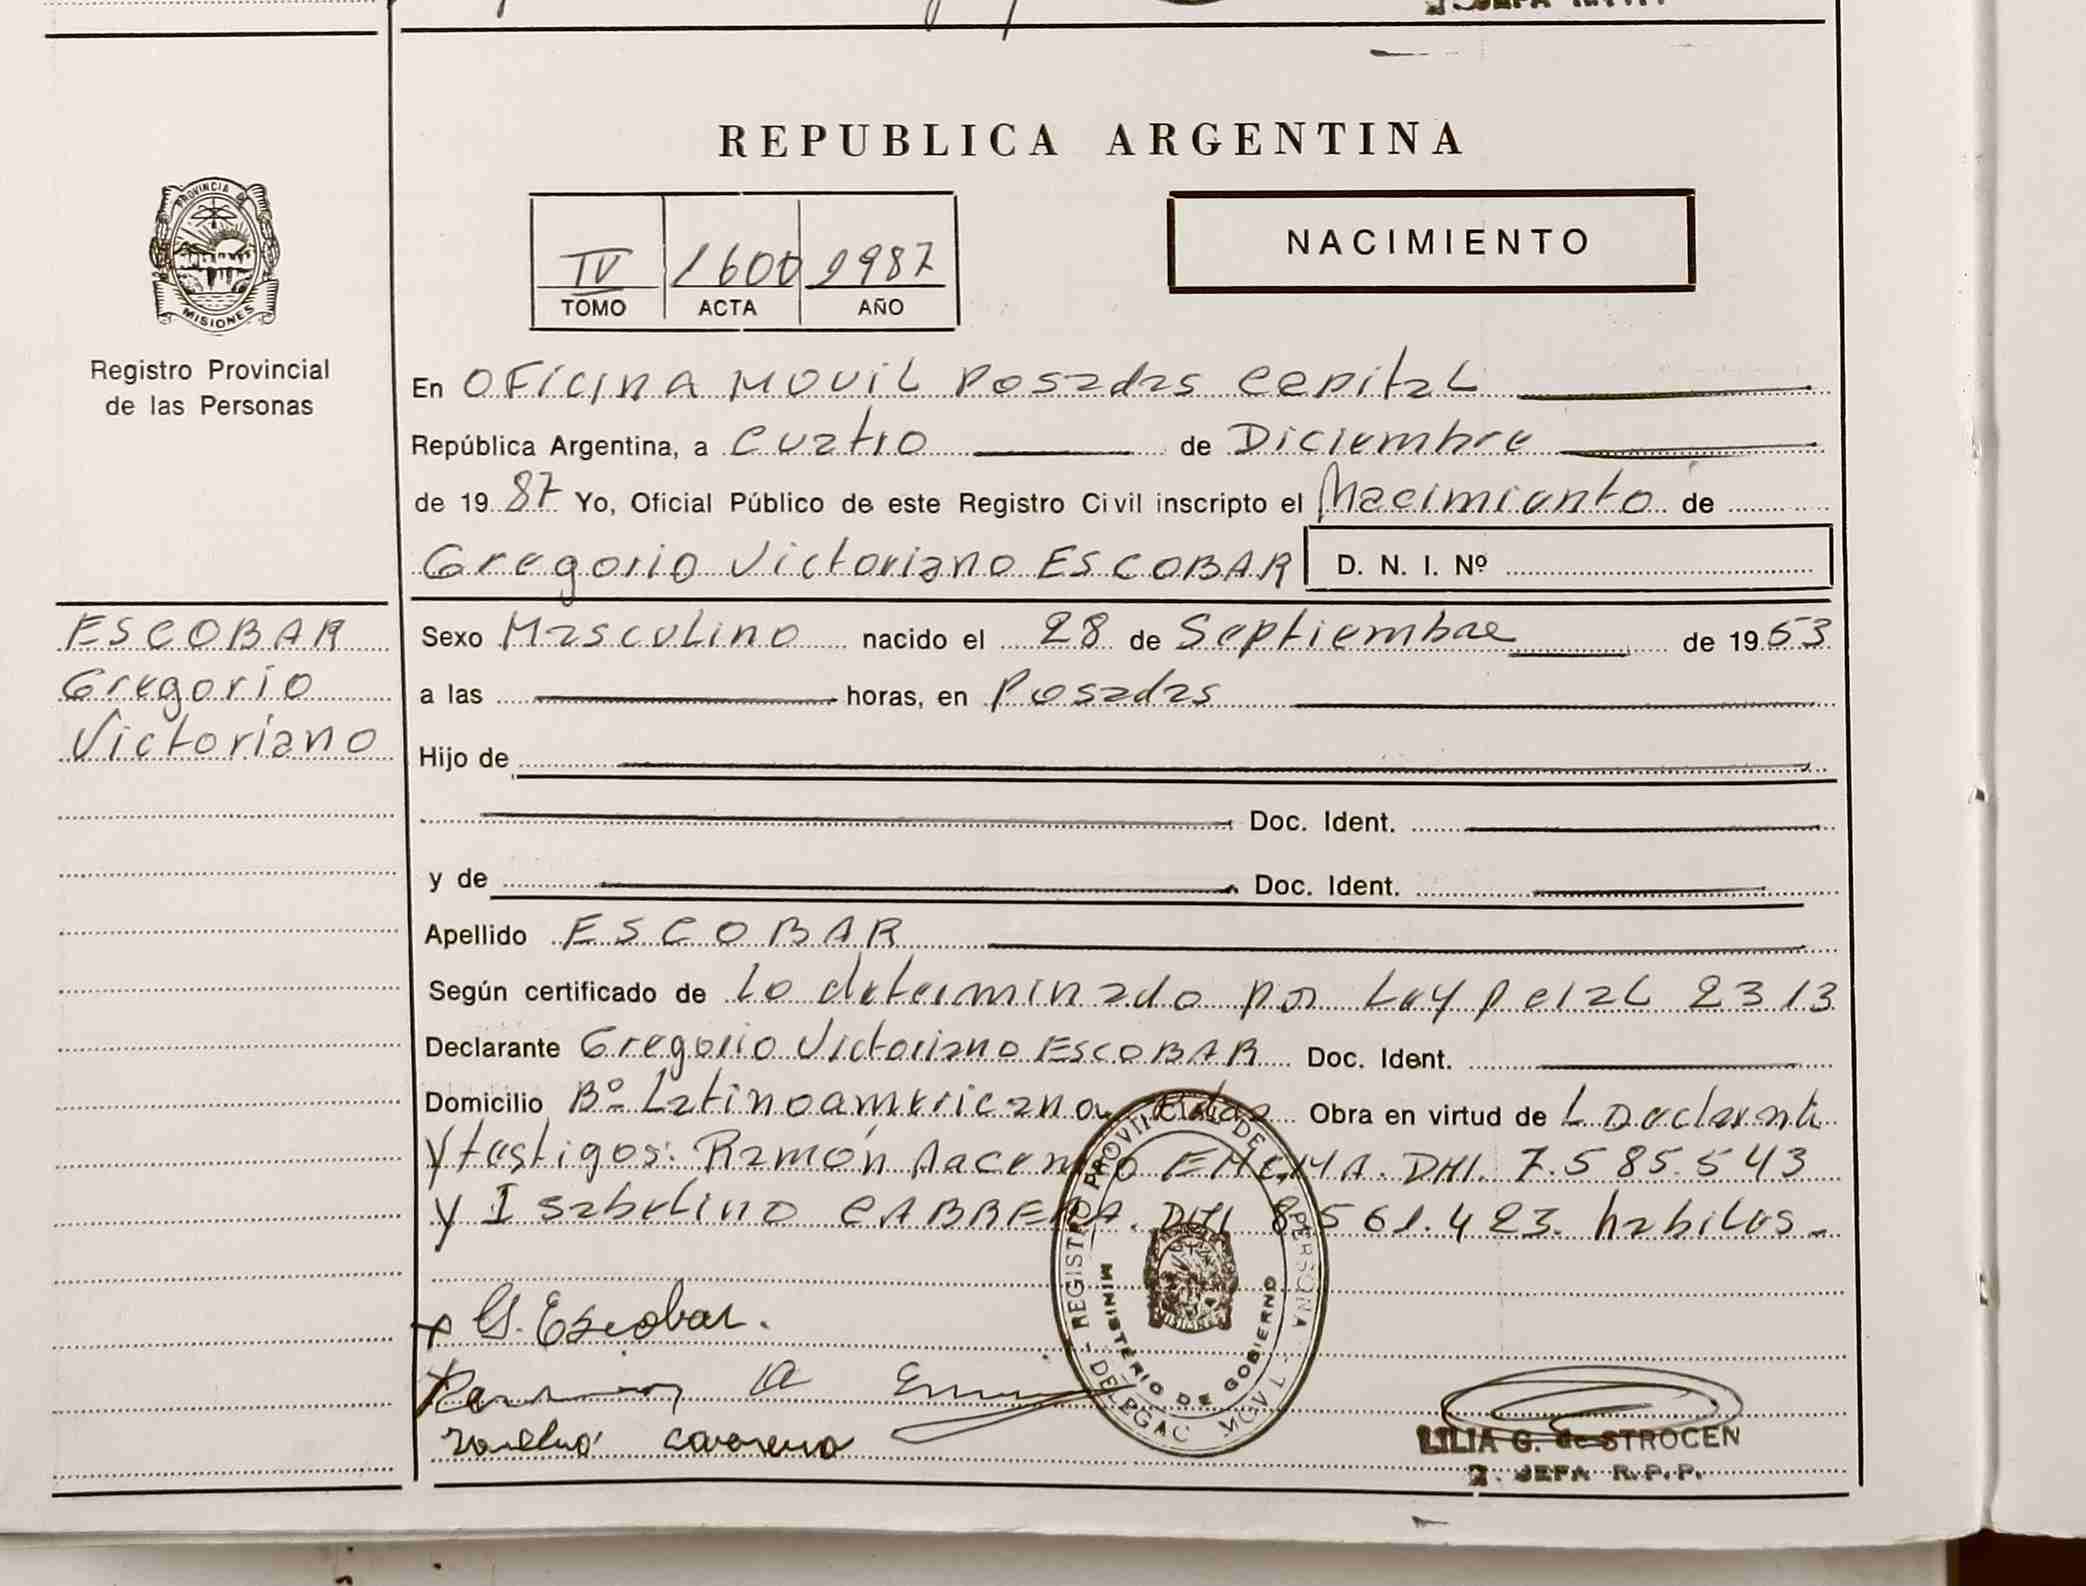 REPUBLICA ARGENTINA
PROVINCIA DE
MISIONES
Registro Provincial
de las Personas
IV 1600 1987
TOMO ACTA AÑO
NACIMIENTO
En OFICINA MOVIL Posadas Capital
República Argentina, a cuatro de Diciembre
de 19 87 Yo, Oficial Público de este Registro Civil inscripto el Nacimiento de
Gregorio Victoriano ESCOBAR D. N. I. Nº
ESCOBAR
Gregorio
Victoriano
Sexo Masculino nacido el 28 de Septiembre de 19 53
a las horas, en Posadas
Hijo de
Doc. Ident.
y de Doc. Ident.
Apellido ESCOBAR
Según certificado de lo determinado por Ley 2313
Declarante Gregorio Victoriano ESCOBAR Doc. Ident.
Domicilio Bº Latinoamericano Obra en virtud de
y testigos: Ramón DNI. 7.585.543
y Isabelino CABRERA. DNI 8.561.423. habiles
G. Escobar.
REGISTRO PROVINCIAL DE PERSONA
MINISTERIO DE GOBIERNO
LILIA G. de STROCEN
2. JEFA R.P.P.